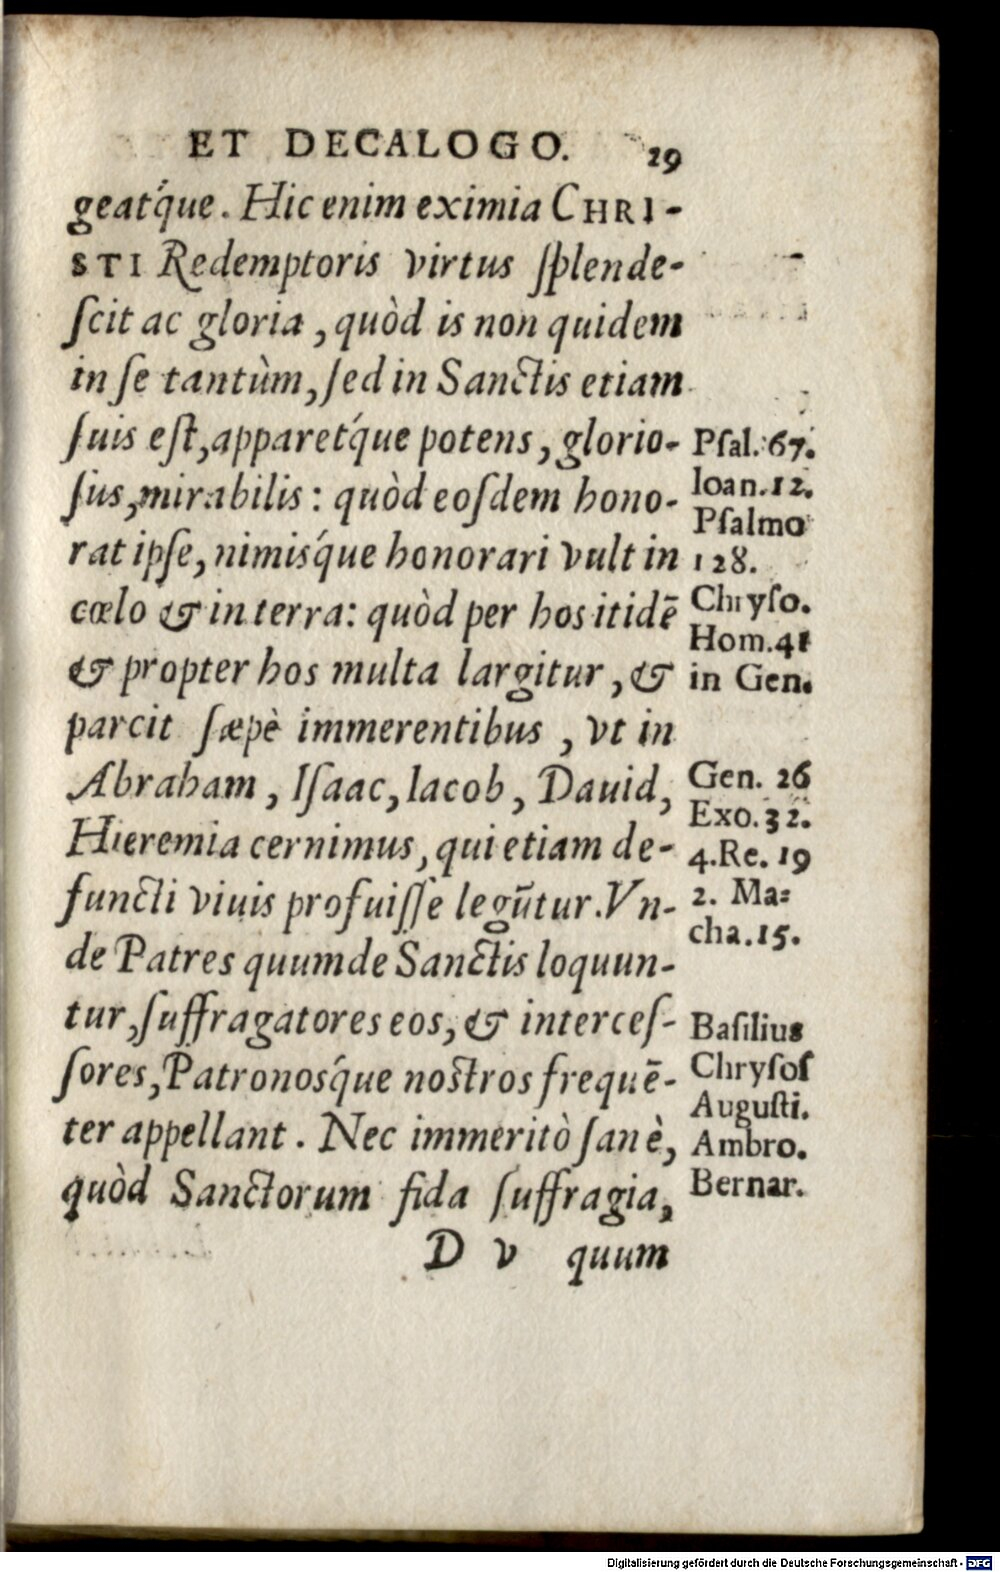 ET DECALOGO. 29
geat́que. Hic enim eximia CHRI-
STI Redemptoris virtus ſplende-
ſcit ac gloria, quòd is non quidem
in ſe tantùm, ſed in Sanctis etiam
ſuis eſt, apparet́que potens, glorio-
ſus, mirabilis: quòd eoſdem hono-
rat ipſe, nimiśque honorari vult in
cœlo & in terra: quòd per hos itidē
& propter hos multa largitur, &
parcit ſæpè immerentibus, vt in
Abraham, Iſaac, Iacob, Dauid,
Hieremia cernimus, qui etiam de-
functi viuis profuiſſe legūtur. Vn-
de Patres quum de Sanctis loquun-
tur, ſuffragatores eos, & interceſ-
ſores, Patronośque noſtros frequē-
ter appellant. Nec immeritò ſanè,
quòd Sanctorum fida ſuffragia,
D v quum
Pſal. 67.
Ioan. 12.
Pſalmo
128.
Chryſo.
Hom. 41
in Gen.
Gen. 26
Exo. 32.
4. Re. 19
2. Ma⸗
cha. 15.
Baſilius
Chryſoſ
Auguſti.
Ambro.
Bernar.
Digitalisierung gefördert durch die Deutsche Forschungsgemeinschaft - DFG